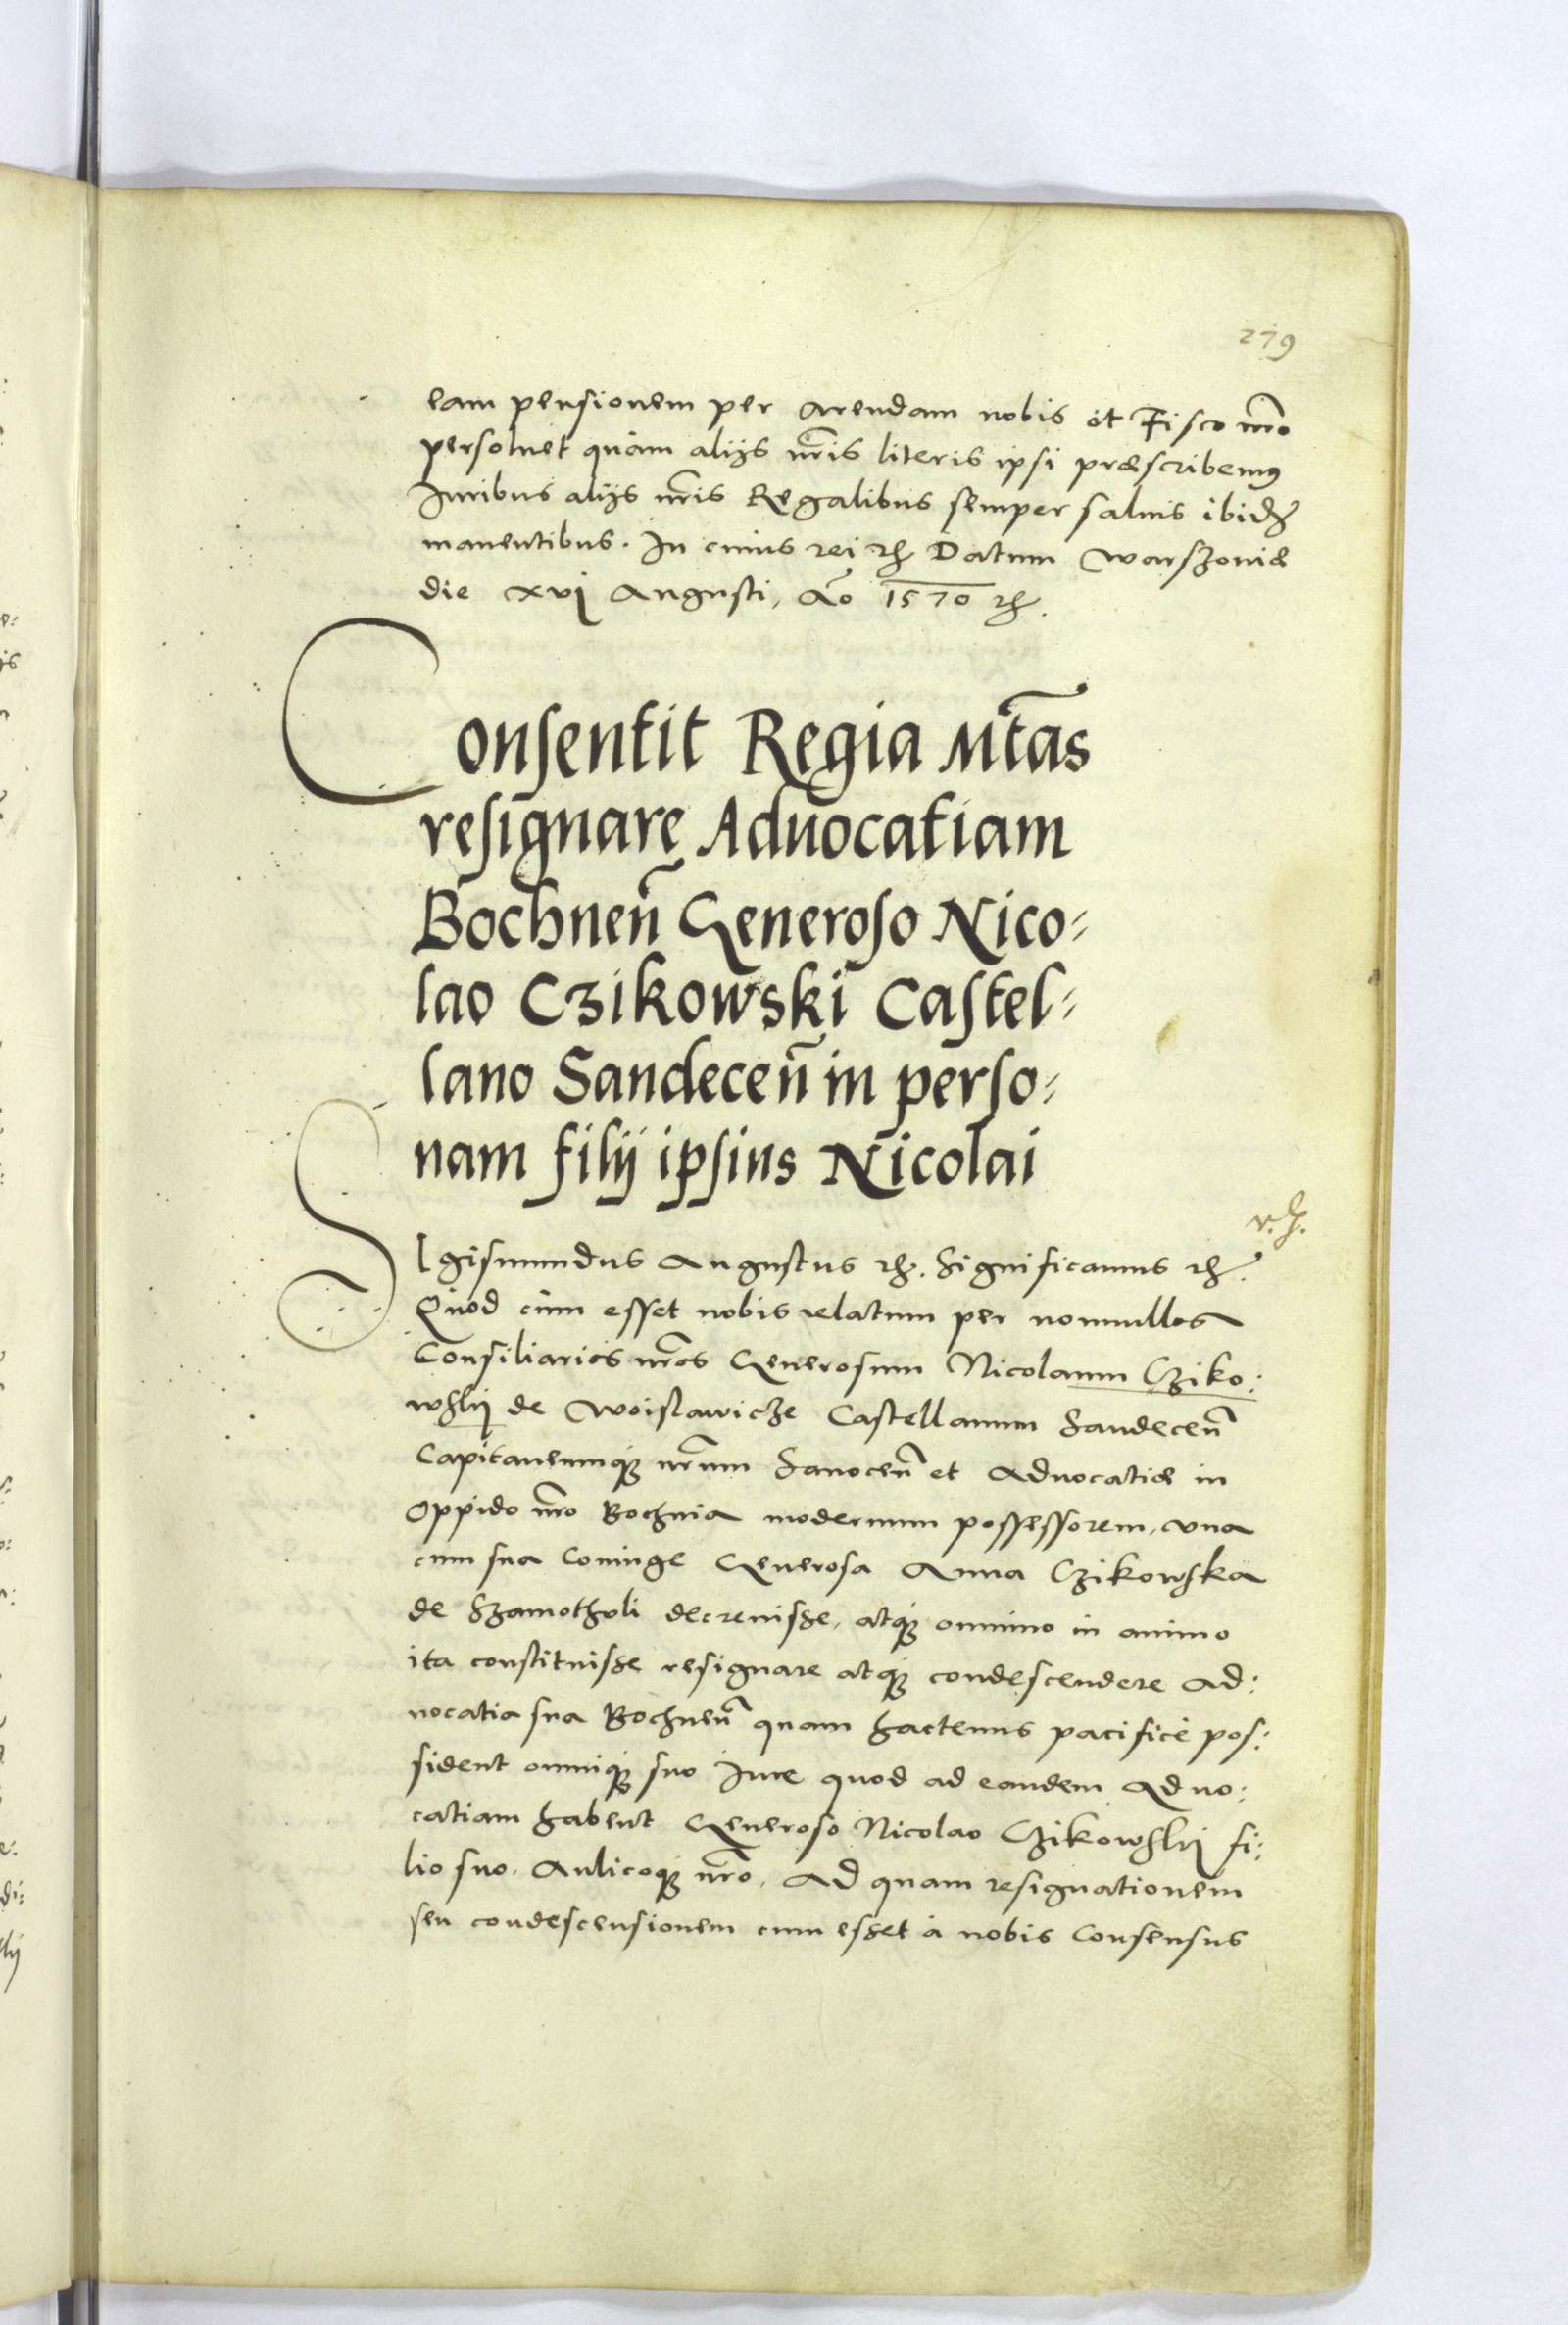 279
eam pensionem per arendam nobis et Fisco nr̃o
persoluet quàm alijs nr̃is literis ipsi præscribemꝰ
Iuribus alijs nr̃is Regalibus semper saluis ibidẽ
manentibus. In cuius rei etc̃ Datum Warszouiæ
die xvj Augusti, Aõ 1570 etc̃.
Consentit Regia Mt̃as
resignare Aduocatiam
Bochneñ Generoso Nico⸗
lao Czikowski Castel⸗
lano Sandeceñ in perso⸗
nam filij ipsius Nicolai
SIgismundus Augustus etc̃. Significamus etc̃.
Quod cùm esset nobis relatum per nonnullos
Consiliarios nr̃os Generosum Nicolaum Cziko:
wskij de Woislawicze Castellanum Sandeceñ
Capitaneumq́ꝫ nr̃um Sanoceñ et Aduocatiæ in
Oppido nr̃o Bochnia modernum possessorem, vna
cum sua Coniuge Generosa Anna Czikowska
de Szamothuli decreuisse, atq́ꝫ omnino in animo
ita constituisse resignare atq́ꝫ condescendere Ad:
uocatia sua Bochneñ quam hactenus pacificè pos:
sident omniq́ꝫ suo Iure quod ad eandem Aduo:
catiam habent Generoso Nicolao Czikowskij fi:
lio suo, Aulicoq́ꝫ nr̃o, Ad quam resignationem
seu condescensionem cum esset à nobis Consensus